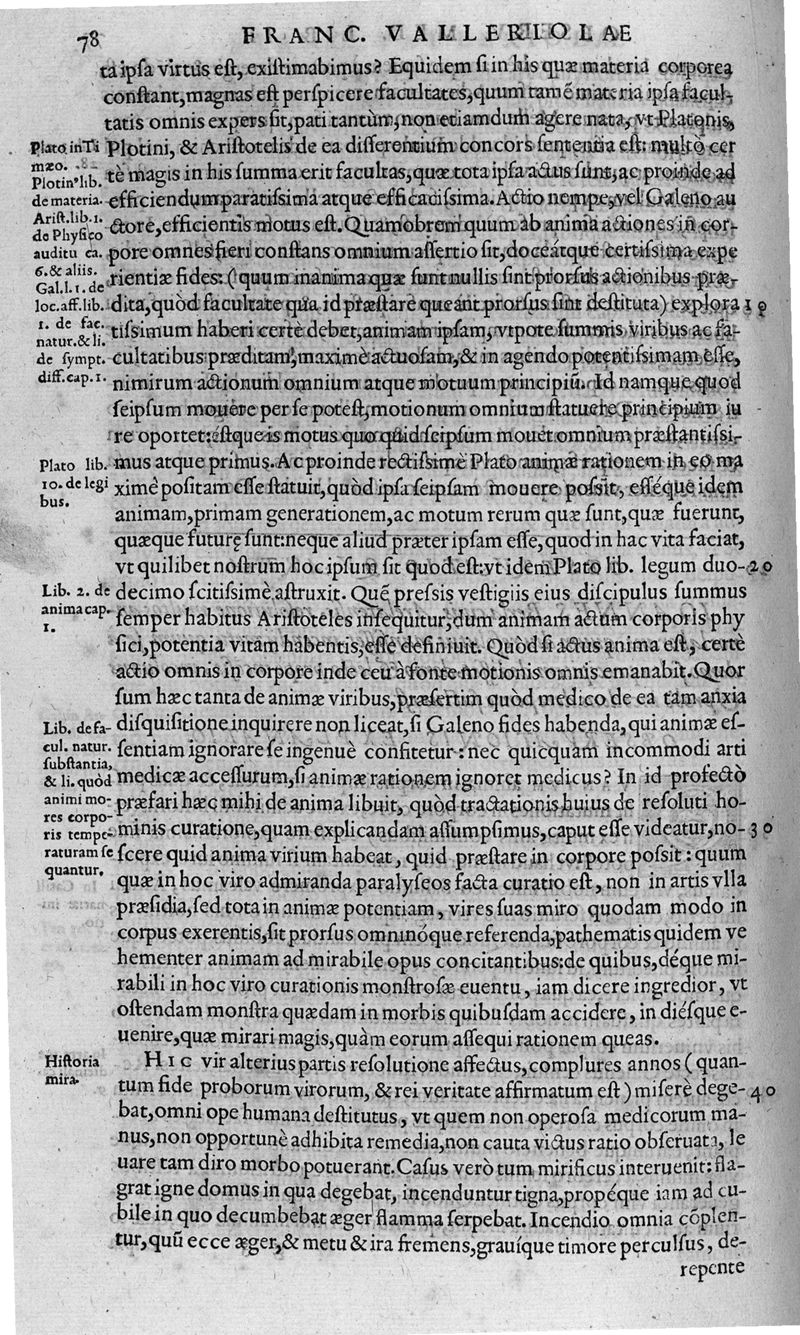 78
FRANC. VALLERIOLAE
ta ipſa virtus eſt, exiſtimabimus? Equidem ſi in his quæ materia corporea
conſtant, magnas eſt perſpicere facultates, quum tamẽ materia ipſa facul-
tatis omnis expers ſit, pati tantùm, non etiamdum agere nata, vt Platonis,
Plato in Ti
Plotini, & Ariſtotelis de ea diſſerentium concors ſententia eſt: multò cer
mæo.
Plotin' lib.
tè magis in his ſumma erit facultas, quæ tota ipſa actus ſunt, ac proinde ad
de materia.
efficiendum paratiſsima atque efficaciſsima. Actio nempe, vel Galeno au
Ariſt. lib. 1.
de Phyſico
ctore, efficientis motus eſt. Quamobrem quum ab anima actiones in cor-
auditu ca.
pore omnes fieri conſtans omnium aſſertio ſit, doceátque certiſsima expe
6. & aliis.
Gal. l. 1. de
rientiæ fides: (quum inanima quæ ſunt nullis ſint prorſus actionibus præ-
loc. aff. lib.
dita, quòd facultate qua id præſtare queant prorſus ſint deſtituta) explora 10
1. de fac.
natur. & li.
tiſsimum haberi certè debet, animam ipſam, vtpote ſummis viribus ac fa-
de ſympt.
cultatibus præditam, maximè actuoſam, & in agendo potentiſsimam eſſe,
diff. cap. 1.
nimirum actionum omnium atque motuum principiũ. Id namque quod
ſeipſum mouere per ſe poteſt, motionum omnium ſtatuere principium iu
re oportet: éſtque is motus quo quid ſeipſum mouet omnium præſtantiſsi-
Plato lib.
mus atque primus. Ac proinde rectiſsimè Plato animæ rationem in eo ma
10. de legi
bus.
ximè poſitam eſſe ſtatuit, quòd ipſa ſeipſam mouere poſsit, eſſéque idem
animam, primam generationem, ac motum rerum quæ ſunt, quæ fuerunt,
quæque futurę ſunt: neque aliud præter ipſam eſſe, quod in hac vita faciat,
vt quilibet noſtrum hoc ipſum ſit quod eſt: vt idem Plato lib. legum duo- 20
Lib. 2. de
decimo ſcitiſsimè aſtruxit. Quẽ preſsis veſtigiis eius diſcipulus ſummus
anima cap.
1.
ſemper habitus Ariſtoteles inſequitur, dum animam actum corporis phy
ſici, potentia vitam habentis, eſſe definiuit. Quòd ſi actus anima eſt, certè
actio omnis in corpore inde ceu à fonte motionis omnis emanabit. Quor
ſum hæc tanta de animæ viribus, præſertim quòd medico de ea tam anxia
Lib. de fa-
diſquiſitione inquirere non liceat, ſi Galeno fides habenda, qui animæ eſ-
cul. natur.
ſubſtantia,
ſentiam ignorare ſe ingenuè confitetur: nec quicquam incommodi arti
& li. quòd
medicæ acceſſurum, ſi animæ rationem ignoret medicus? In id profectò
animi mo-
præfari hæc mihi de anima libuit, quòd tractationis huius de reſoluti ho-
res corpo-
ris tempe-
minis curatione, quam explicandam aſſumpſimus, caput eſſe videatur, no- 30
raturam ſe
ſcere quid anima virium habeat, quid præſtare in corpore poſsit: quum
quantur.
quæ in hoc viro admiranda paralyſeos facta curatio eſt, non in artis vlla
præſidia, ſed tota in animæ potentiam, vires ſuas miro quodam modo in
corpus exerentis, ſit prorſus omninóque referenda, pathematis quidem ve
hementer animam ad mirabile opus concitantibus: de quibus, déque mi-
rabili in hoc viro curationis monſtroſæ euentu, iam dicere ingredior, vt
oſtendam monſtra quædam in morbis quibuſdam accidere, in diéſque e-
uenire, quæ mirari magis, quàm eorum aſſequi rationem queas.
Hiſtoria
mira.
HIC vir alterius partis reſolutione affectus, complures annos (quan-
tum fide proborum virorum, & rei veritate affirmatum eſt) miſerè dege- 40
bat, omni ope humana deſtitutus, vt quem non operoſa medicorum ma-
nus, non opportunè adhibita remedia, non cauta victus ratio obſeruata, le
uare tam diro morbo potuerant. Caſus verò tum mirificus interuenit: fla-
grat igne domus in qua degebat, incenduntur tigna, propéque iam ad cu-
bile in quo decumbebat æger flamma ſerpebat. Incendio omnia cõplen-
tur, quũ ecce æger, & metu & ira fremens, grauíque timore perculſus, de-
repente